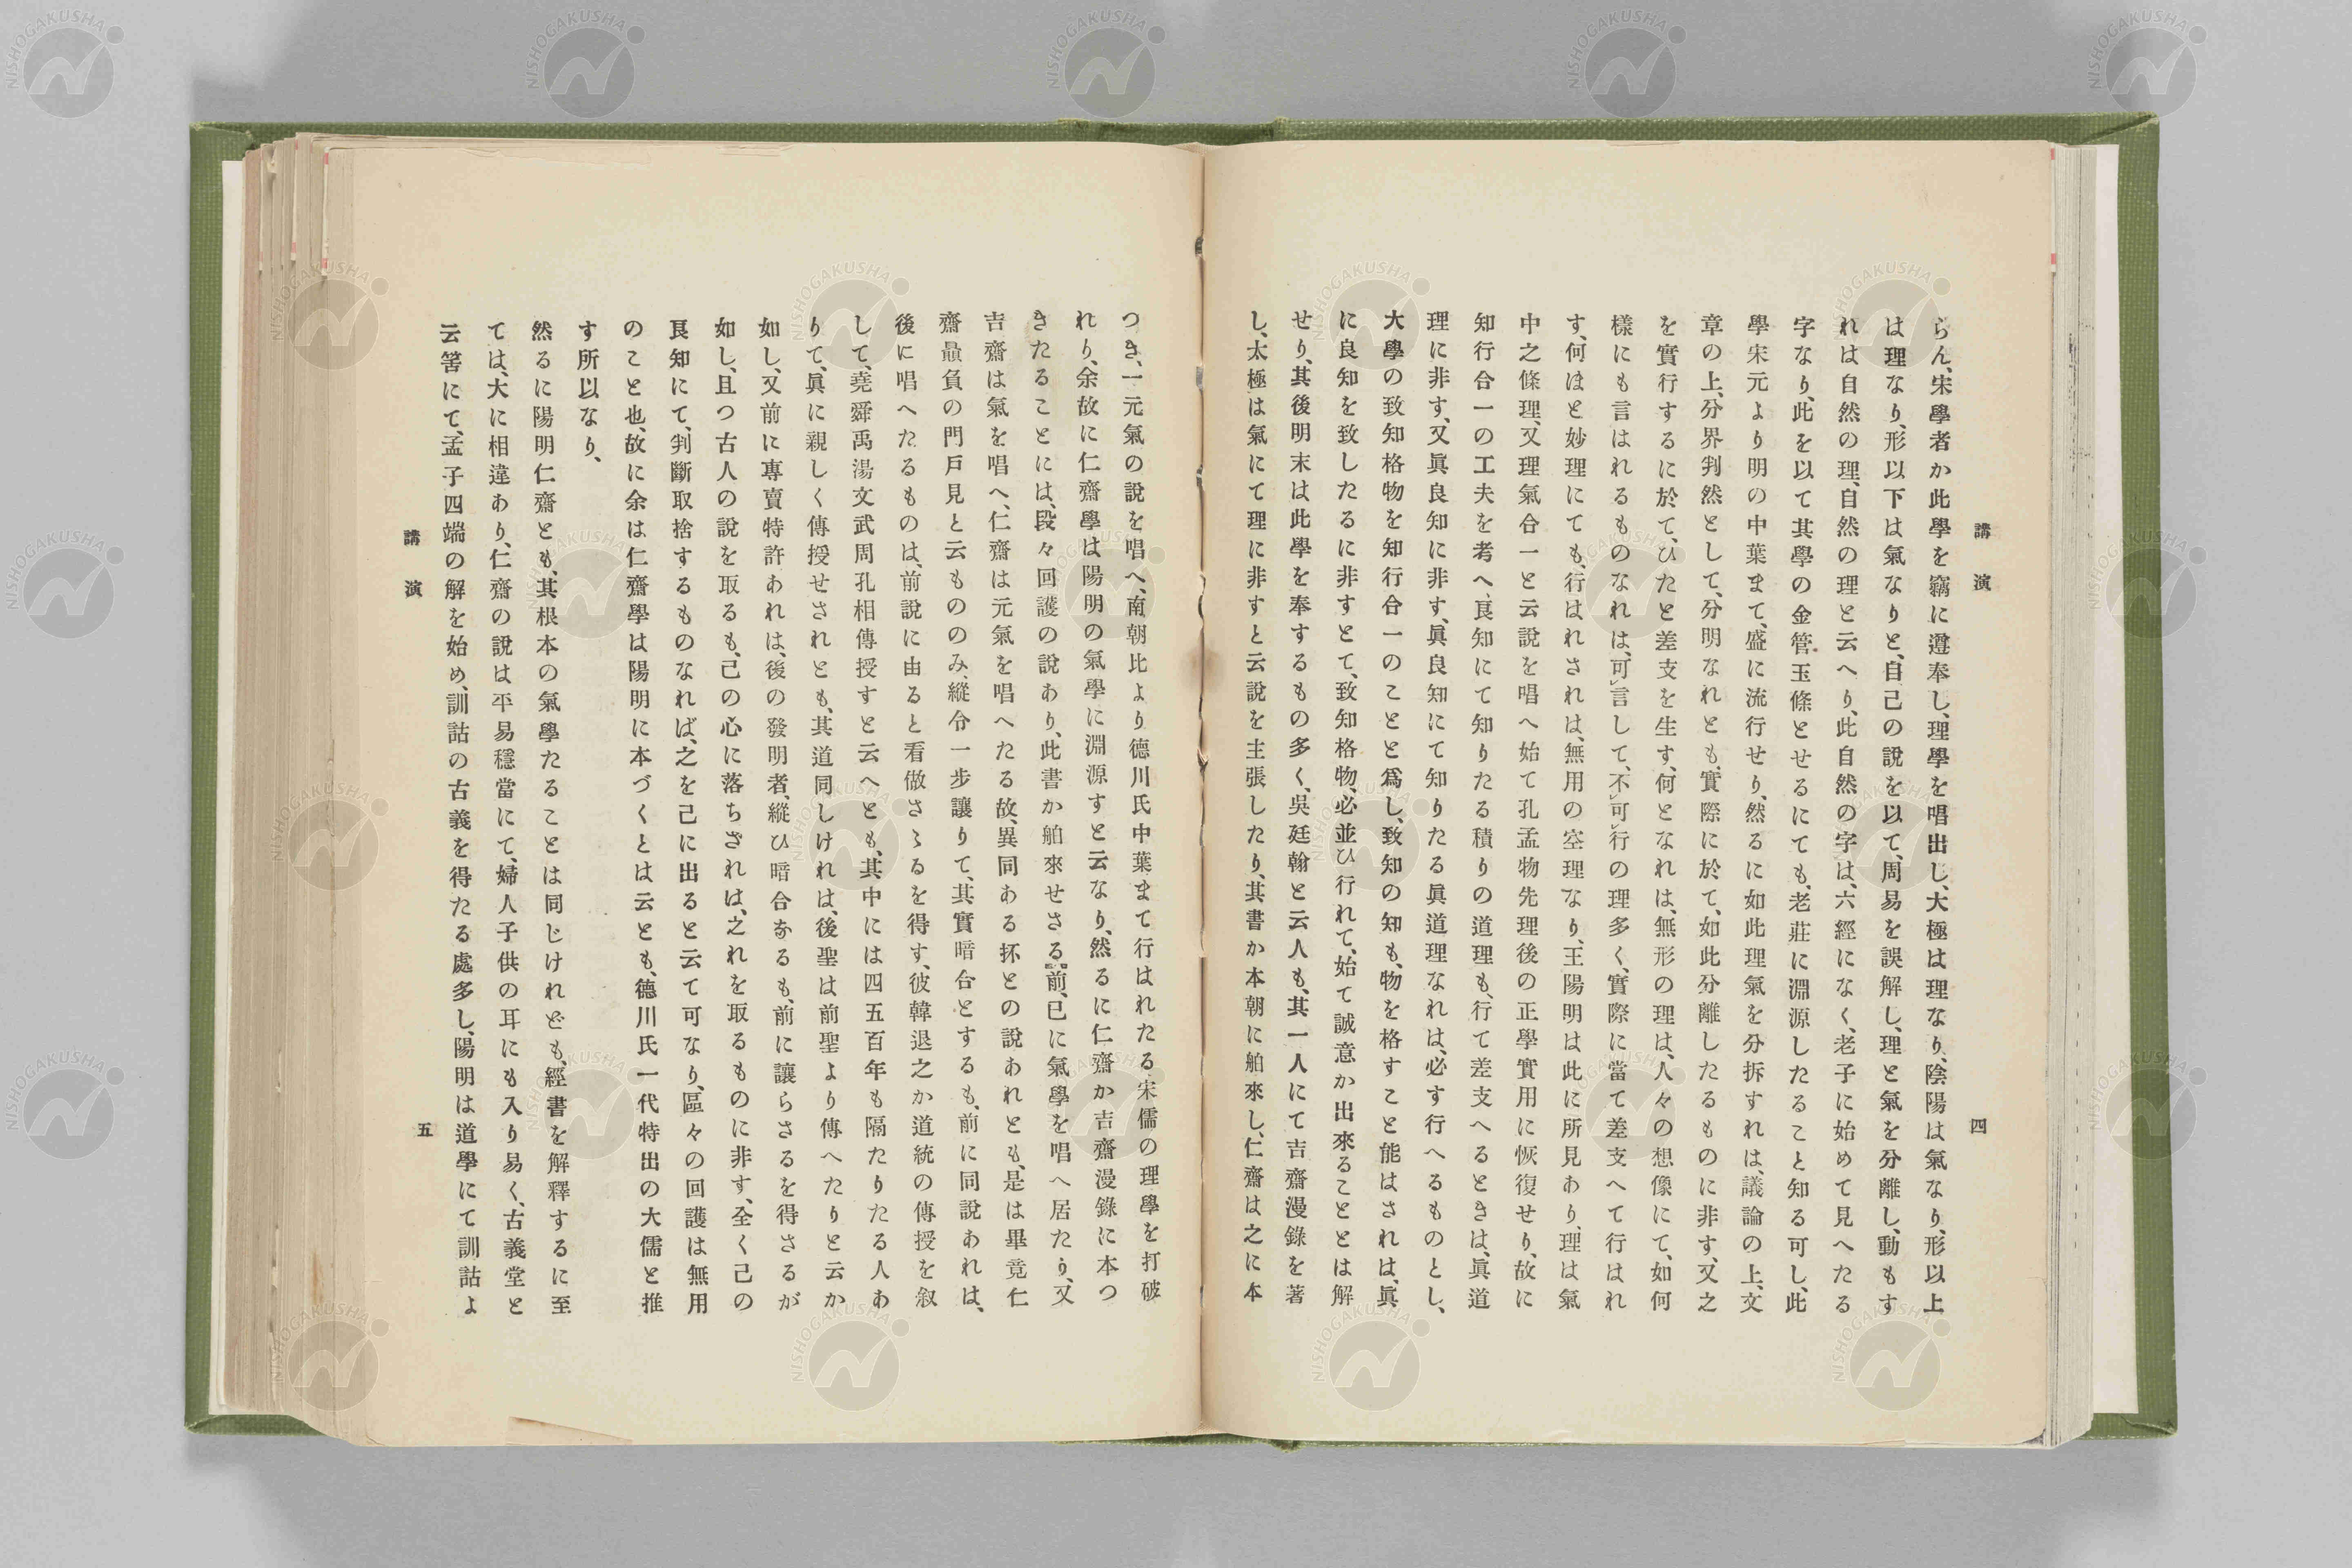 講演
四
らん、宋學者か此學を竊に遵奉し、理學を唱出し、大極は理なり、陰陽は氣なり、形以上
は理なり、形以下は氣なりと、自己の說を以て、周易を誤解し、理と氣を分離し、動もす
れは自然の理、自然の理と云へり、此自然の字は、六經になく、老子に始めて見へたる
字なり、此を以て其學の金管玉條とせるにても、老莊に淵源したること知る可し、此
學宋元より明の中葉まて、盛に流行せり、然るに如此理氣を分拆すれは、議論の上、文
章の上、分界判然として、分明なれとも、實際に於て、如此分離したるものに非す、又之
を實行するに於て、ひたと差支を生す、何となれは、無形の理は、人々の想像にて、如何
樣にも言はれるものなれは、可言して、不可行の理多く、實際に當て差支へて行はれ
す、何ほと妙理にても、行はれされは、無用の空理なり、王陽明は此に所見あり、理は氣
中之條理、又理氣合一と云說を唱へ始て孔孟物先理後の正學實用に恢復せり、故に
知行合一の工夫を考へ、良知にて知りたる積りの道理も、行て差支へるときは、眞道
理に非す、又眞良知に非す、眞良知にて知りたる眞道理なれは、必す行へるものとし、
大學の致知格物を知行合一のことと爲し、致知の知も、物を格すこと能はされは、眞
に良知を致したるに非すとて、致知格物、必並ひ行れて、始て誠意か出來ることとは解
せり、其後明末は此學を奉するもの多く、吳廷翰と云人も、其一人にて吉齋漫錄を著
し、太極は氣にて理に非すと云說を主張したり、其書か本朝に舶來し、仁齋は之に本
つき、一元氣の說を唱へ、南朝比より德川氏中葉まて行はれたる宋儒の理學を打破
れり、余故に仁齋學は陽明の氣學に淵源すと云なり、然るに仁齋か吉齋漫錄に本つ
きたることには、段々回護の說あり、此書か舶來せさる前、已に氣學を唱へ居たり、又
吉齋は氣を唱へ、仁齋は元氣を唱へたる故、異同ある抔との說あれとも、是は畢竟仁
齋贔負の門戶見と云もののみ、縱令一步讓りて、其實暗合とするも、前に同說あれは、
後に唱へたるものは、前說に由ると看倣さゝるを得す、彼韓退之か道統の傳授を叙
して、堯舜禹湯文武周孔相傳授すと云へとも、其中には四五百年も隔たりたる人あ
りて、眞に親しく傳授せされとも、其道同しけれは、後聖は前聖より傳へたりと云か
如し、又前に專賣特許あれは、後の發明者、縱ひ暗合なるも、前に讓らさるを得さるが
如し、且つ古人の說を取るも、己の心に落ちざれは、之れを取るものに非す、全く己の
良知にて、判斷取捨するものなれば、之を己に出ると云て可なり、區々の回護は無用
のこと也、故に余は仁齋學は陽明に本づくとは云とも、德川氏一代特出の大儒と推
す所以なり、
然るに陽明仁齋とも、其根本の氣學たることは同じけれども、經書を解釋するに至
ては、大に相違あり、仁齋の說は平易穩當にて、婦人子供の耳にも入り易く、古義堂と
云筈にて、孟子四端の解を始め、訓詁の古義を得たる處多し、陽明は道學にて訓詁よ
講演
五
NISHOGAKUSHA